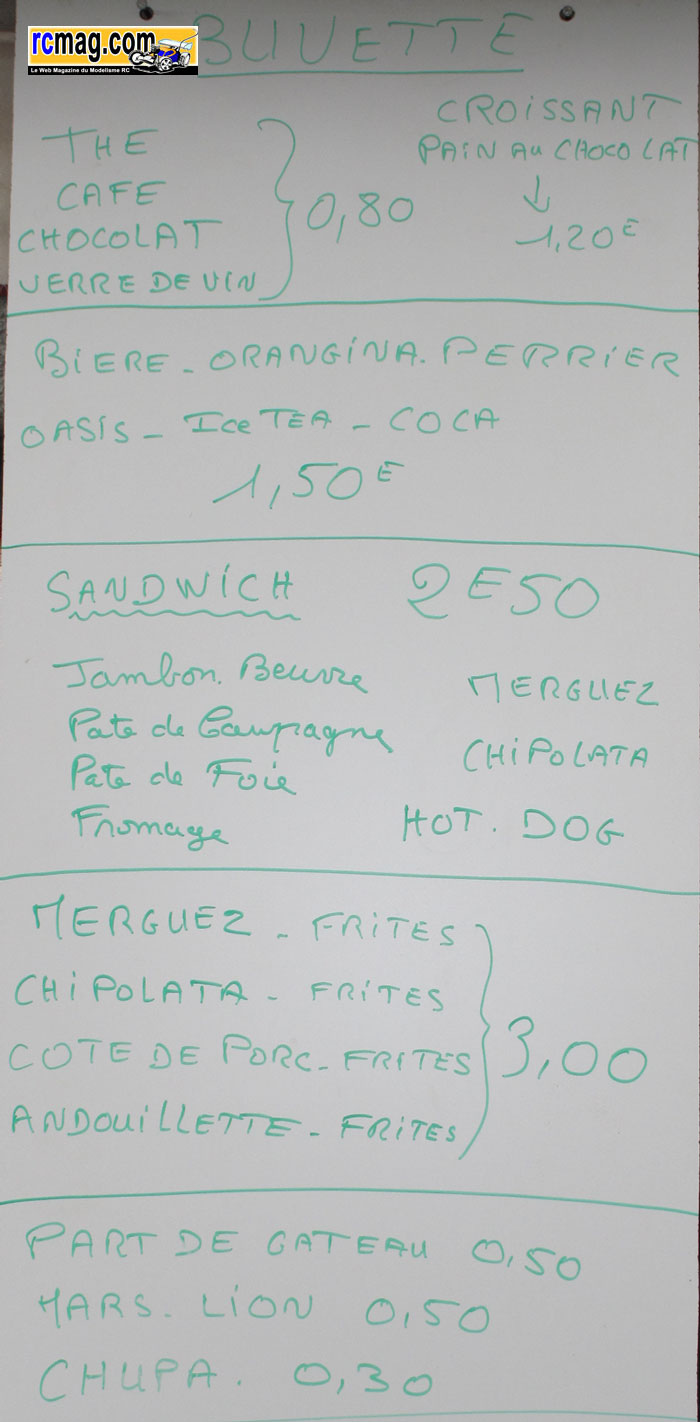 rcmag.com
Le Web Magazine du Modelisme RC
BUVETTE
THE
CAFE
CHOCOLAT
VERRE DE VIN
0,80
CROISSANT
PAIN AU CHOCOLAT
1,20E
BIERE - ORANGINA. PERRIER
OASIS - Ice TEA - COCA
1,50E
SANDWICH 2E50
Jambon. Beurre
Pate de Campagne
Pate de Foie
Fromage
MERGUEZ
CHIPOLATA
HOT. DOG
MERGUEZ - FRITES
CHIPOLATA - FRITES
COTE DE PORC - FRITES
ANDOUILLETTE - FRITES
3,00
PART DE GATEAU 0,50
MARS. LION 0,50
CHUPA. 0,30